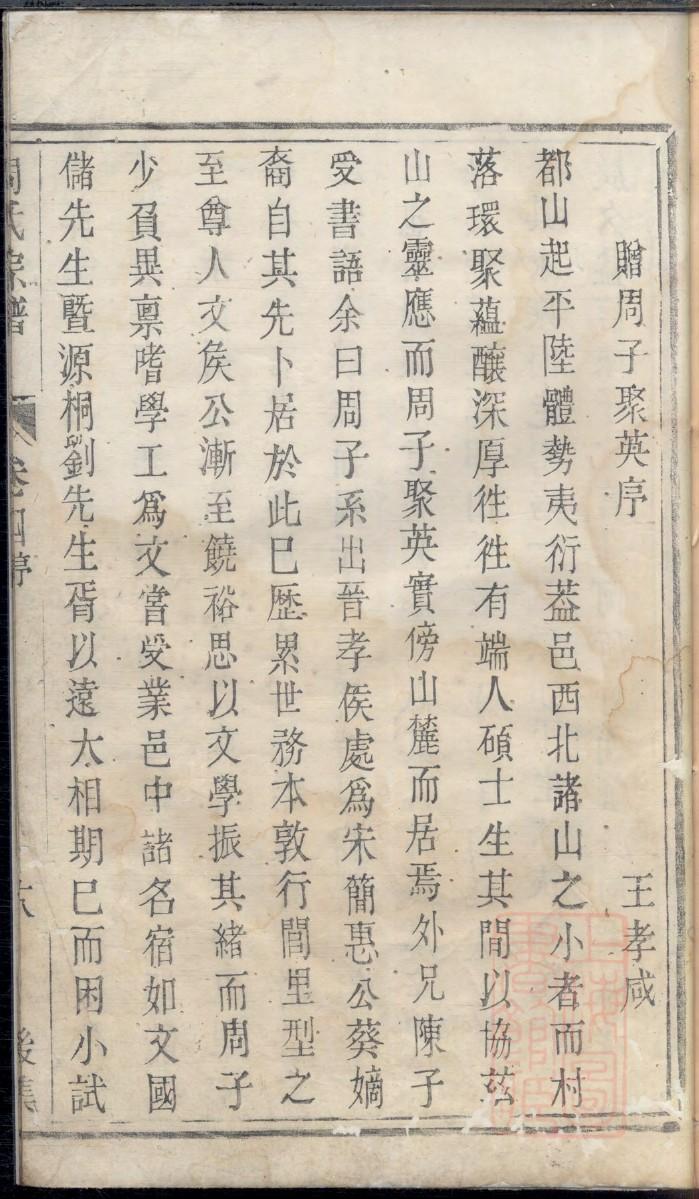 贈周子聚英序
王孝咸
都山起平陸體勢夷衍葢邑西北諸山之小者而村
落環聚蘊釀深厚徃徃有端人碩士生其間以協茲
山之靈應而周子聚英實傍山麓而居焉外兄陳子
受書語余曰周子系出晉孝侯處爲宋簡惠公葵嫡
裔自其先卜居於此巳歷累世務本敦行閭里型之
至尊人文矦公漸至饒裕思以文學振其緒而周子
少負異禀嗜學工爲文嘗受業邑中諸名宿如文國
儲先生暨源桐劉先生胥以遠大相期巳而困小試
周氏宗譜
卷四序
六
後集